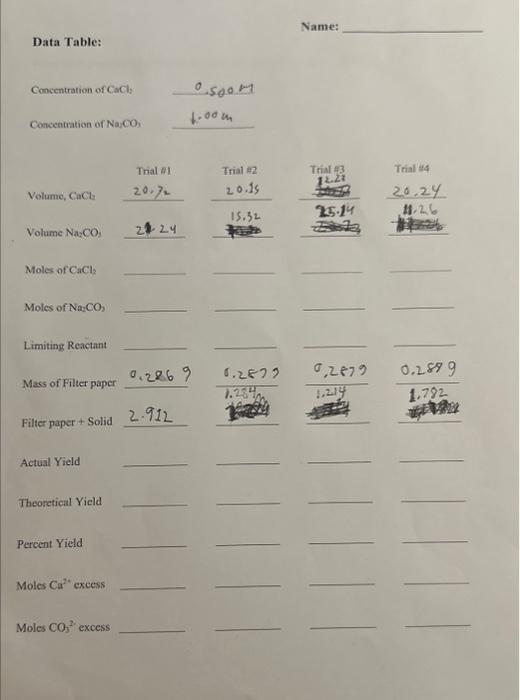 Name:
Data Table:
Concentration of CaCl₂ 0.500 M
Concentration of Na₂CO₃ 1.00 m
Trial #1 Trial #2 Trial #3 Trial #4
Volume, CaCl₂ 20.15 12.23 20.24
Volume Na₂CO₃ 15.32 25.14
Moles of CaCl₂
Moles of Na₂CO₃
Limiting Reactant
Mass of Filter paper
Filter paper + Solid 2.912 1.214 1.792
Actual Yield
Theoretical Yield
Percent Yield
Moles Ca²⁺ excess
Moles CO₃²⁻ excess